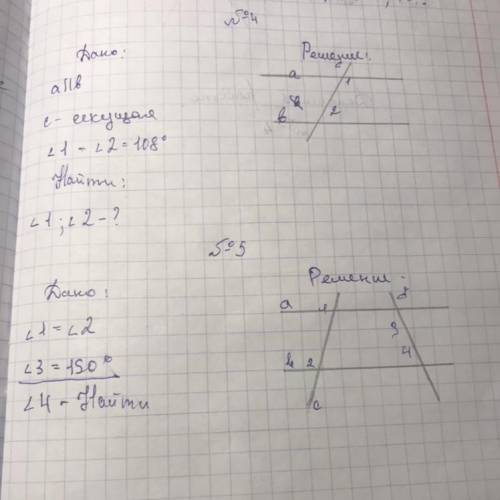 №4
Дано:
Решение:
a||в
c - секущая
∠1 - ∠2 = 108°
Найти:
∠1; ∠2 - ?
a
1
в
2
№5
Дано:
Решение.
∠1 = ∠2
∠3 = 150°
∠4 - Найти
a
1
3
2
4
c